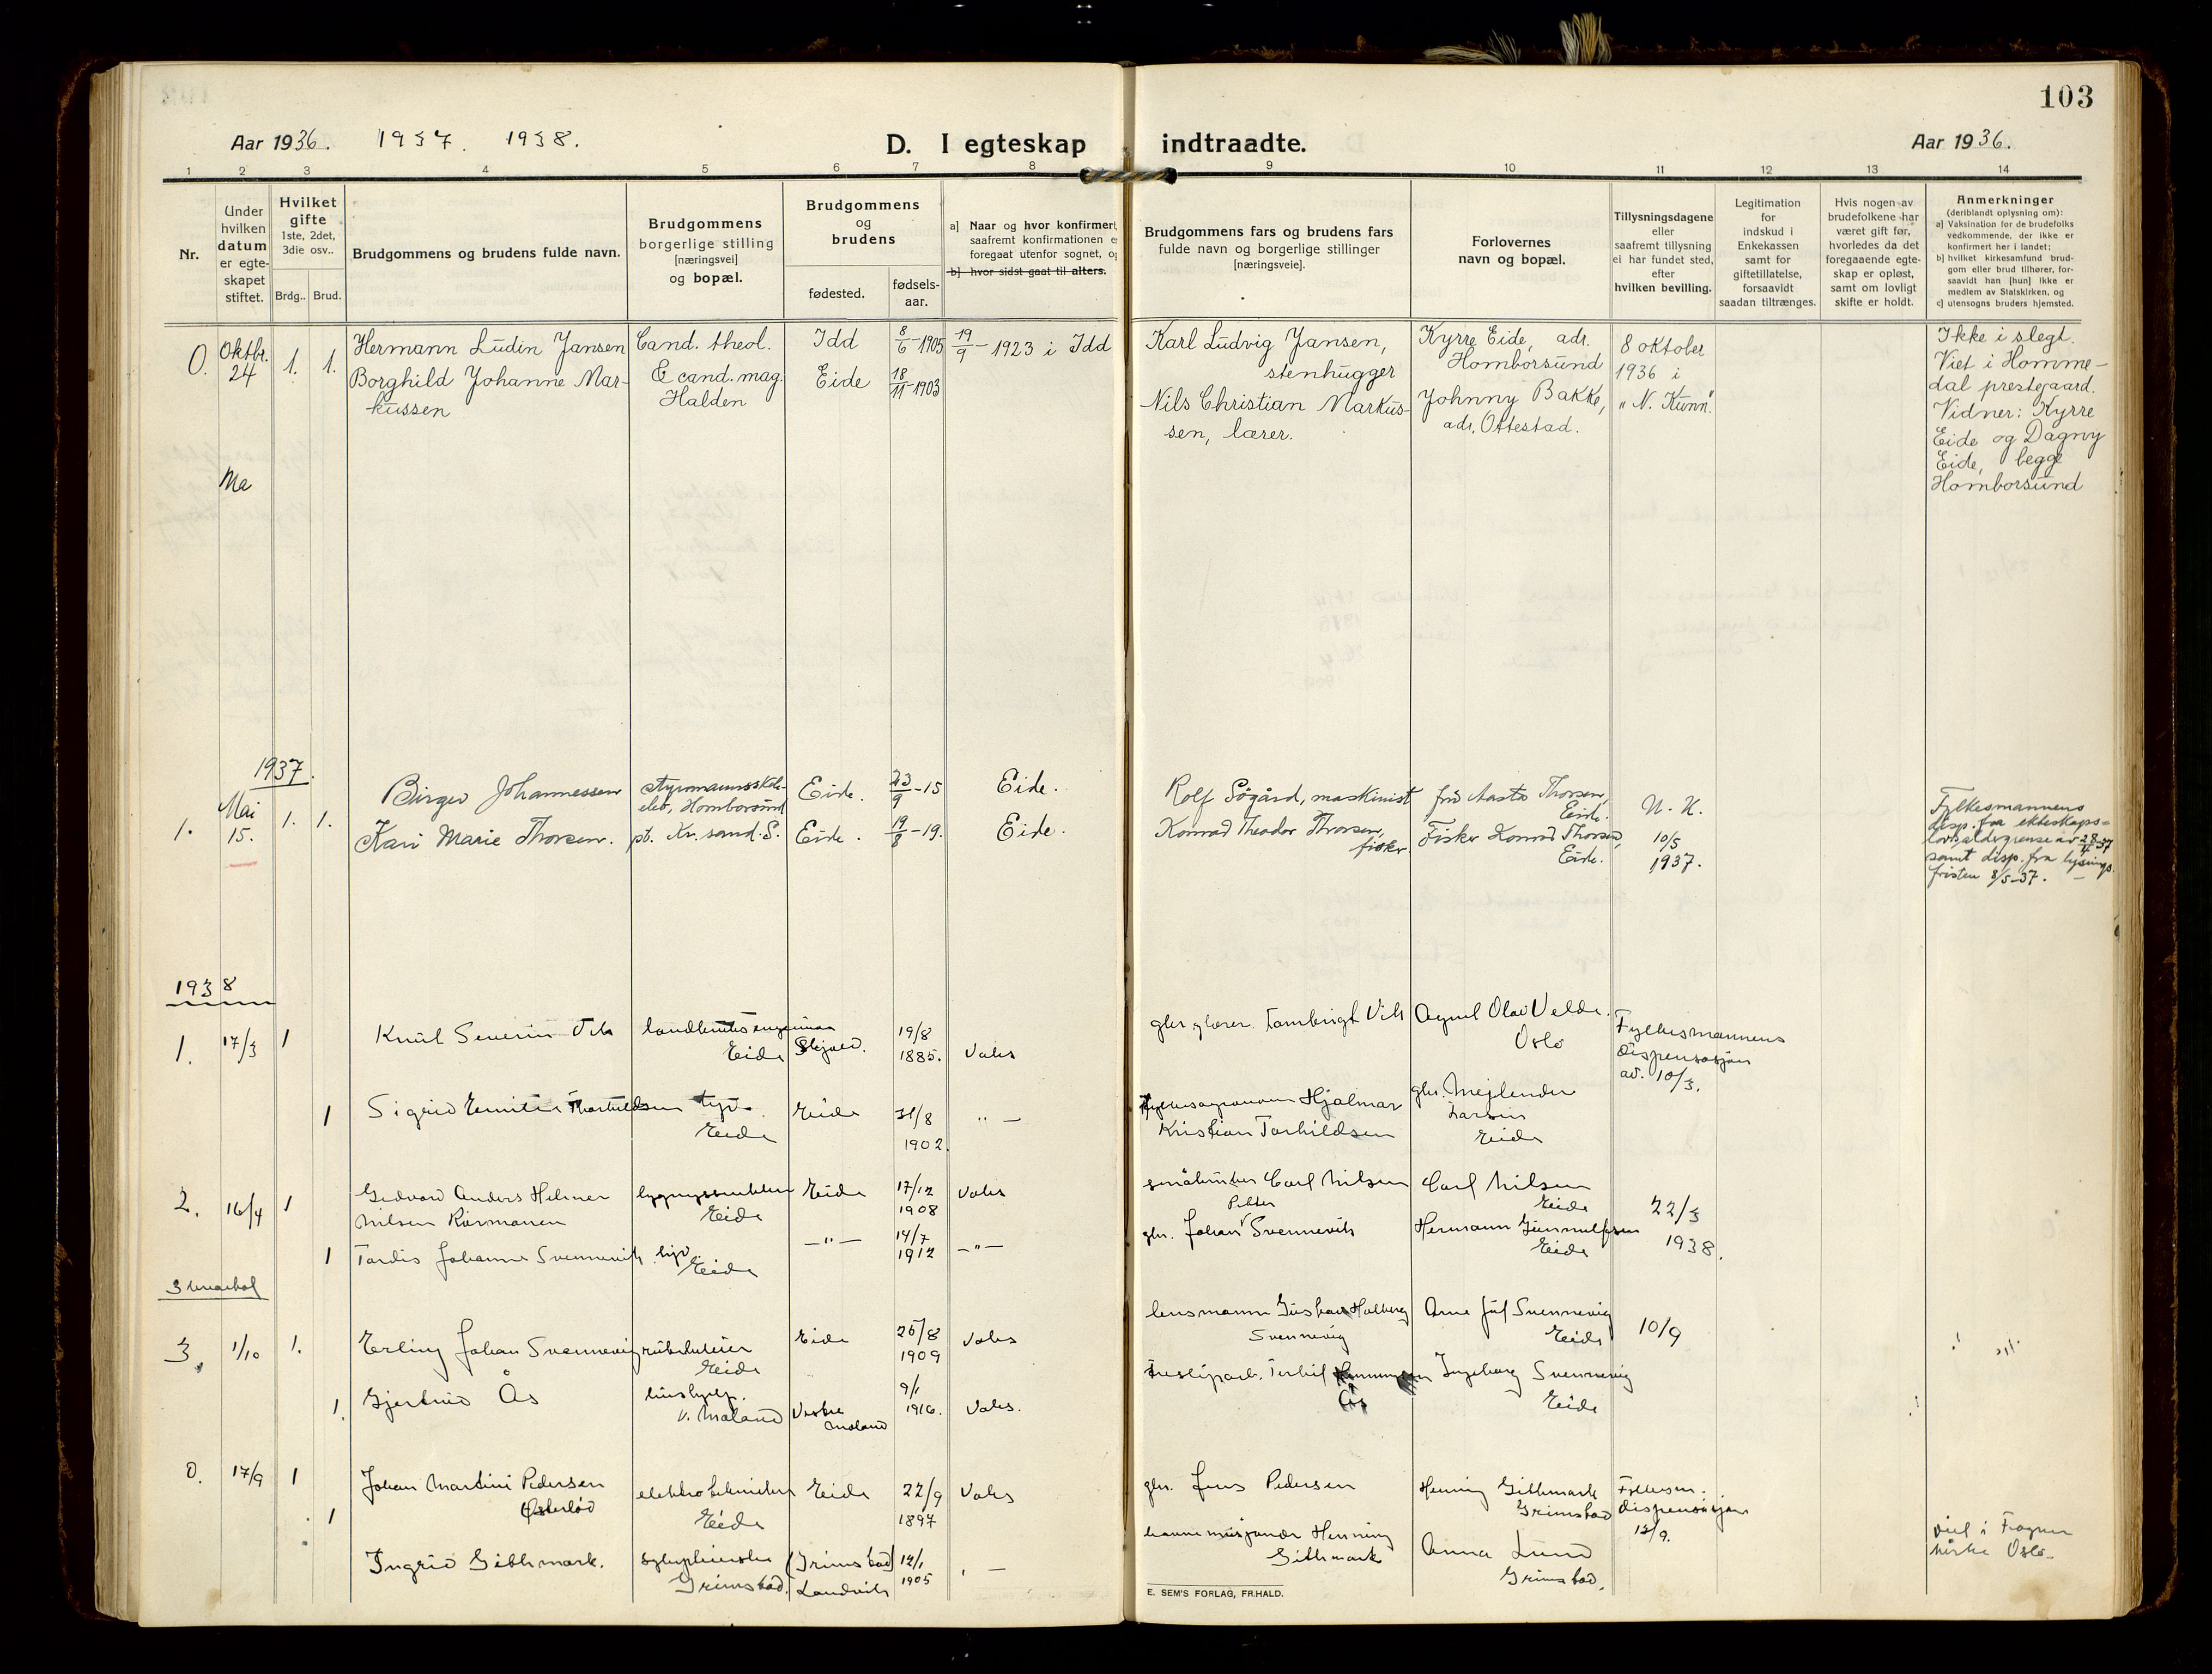 103
Aar 1936. 1937. 1938.
D. I egteskap indtraadte.
Aar 1936.
1 2 3 4 5 6 7 8 9 10 11 12 13 14
Nr.
Under
hvilken
datum
er egte-
skapet
stiftet.
Hvilket
gifte
1ste, 2det,
3die osv..
Brdg.. Brud.
Brudgommens og brudens fulde navn.
Brudgommens
borgerlige stilling
[næringsvei]
og bopæl.
Brudgommens
og
brudens
fødested.
fødsels-
aar.
a) Naar og hvor konfirmert,
saafremt konfirmationen e
foregaat utenfor sognet, og
b) hvor sidst gaat til alters.
Brudgommens fars og brudens fars
fulde navn og borgerlige stillinger
[næringsveie].
Forlovernes
navn og bopæl.
Tillysningsdagene
eller
saafremt tillysning
ei har fundet sted,
efter
hvilken bevilling.
Legitimation
for
indskud i
Enkekassen
samt for
giftetillatelse,
forsaavidt
saadan tiltrænges.
Hvis nogen av
brudefolkene har
været gift før,
hvorledes da det
foregaaende egte-
skap er opløst,
samt om lovligt
skifte er holdt.
Anmerkninger
(deriblandt oplysning om):
a) Vaksination for de brudefolks
vedkommende, der ikke er
konfirmert her i landet;
b) hvilket kirkesamfund brud-
gom eller brud tilhører, for-
saavidt han [hun] ikke er
medlem av Statskirken, og
c) utensogns bruders hjemsted.
0.
Oktbr.
24
1. 1.
Hermann Ludin Jansen
Borghild Johanne Mar-
kussen
Cand. theol.
& cand. mag.
Halden
Idd
Eide
8/6-1905
18/11-1903
19/9-1923 i Idd
Karl Ludvig Jansen,
stenhugger
Nils Christian Markus-
sen, lærer.
Kyrre Eide, adr.
Homborsund
Johnny Bakke,
adr. Ottestad.
8 oktober
1936 i
"N. Kunn."
Ikke i slegt.
Viet i Homme-
dal prestegaard.
Vidner: Kyrre
Eide og Dagny
Eide, begge
Homborsund
Ma
1937.
1.
Mai
15.
1. 1.
Birger Johannessen
Kari Marie Thorsen.
styrmannsskole-
elev, Homborsund
pt. Kr. sand. S.
Eide.
Eide.
23/9-15
19/8-19.
Eide.
Eide.
Rolf Søgård, maskinist
Konrad Theodor Thorsen,
fisker.
frú Aasta Thorsen,
Eide.
Fisker Konrad Thorsen,
Eide.
N. K.
10/5
1937.
Fylkesmannens
disp. fra ekteskaps-
lovs aldergrense av 28/4-37
samt disp. fra lysnings
fristen 8/5-37.
1938
1.
17/3
1
Knut Severin
Eide
Skjold.
19/8
1885.
Vaks
Agnul Olav Velde.
Oslo
Fylkesmannens
dispensasjon
av. 10/3.
1
Sigrid
Eide
Eide
31/8
1902.
" —
Hjalmar
Kristian Torkildsen
gbr. Mejlender
Larsen
Eide
2.
16/4
1
Gedvard Anders Helmer
Nilsen Rørmanen
Eide
Eide
17/12
1908
Vaks
småbruker Carl Nilsen
Carl Nilsen
Eide
22/3
1938.
1
Tordis Johanne Svennevik
Eide
—"—
14/7
1912
—"—
gbr. Johan Petter Svennevik
Hermann Gunnulfsen
Eide
3.
1/10
1.
Erling Johan Svennevig
Eide
Eide
25/8
1909
Vaks
lensmann Gustav Holberg
Svennevig
Arne Juf Svennevig
Eide
10/9
1.
Gjertrud Ås
hushjelp.
V. Moland
Vestre
Moland
9/1
1916.
Vaks.
Ås
Ingeborg Svennevig
Eide
0.
17/9
1
Johan Martini Pedersen
Østerlød
elektrotekniker
Eide
Eide
22/9
1897
Vaks
gbr. Jens Pedersen
Henning Githmark
Grimstad
Fylkesm.
dispensasjon
12/9.
1
Ingrid Githmark.
sykepleierske
Grimstad.
(Grimstad)
Landvik
12/1
1905
Henning
Githmark
Anna Lund
Grimstad.
viet i Frogner
kirke Oslo.
E. SEM'S FORLAG, FR.HALD.